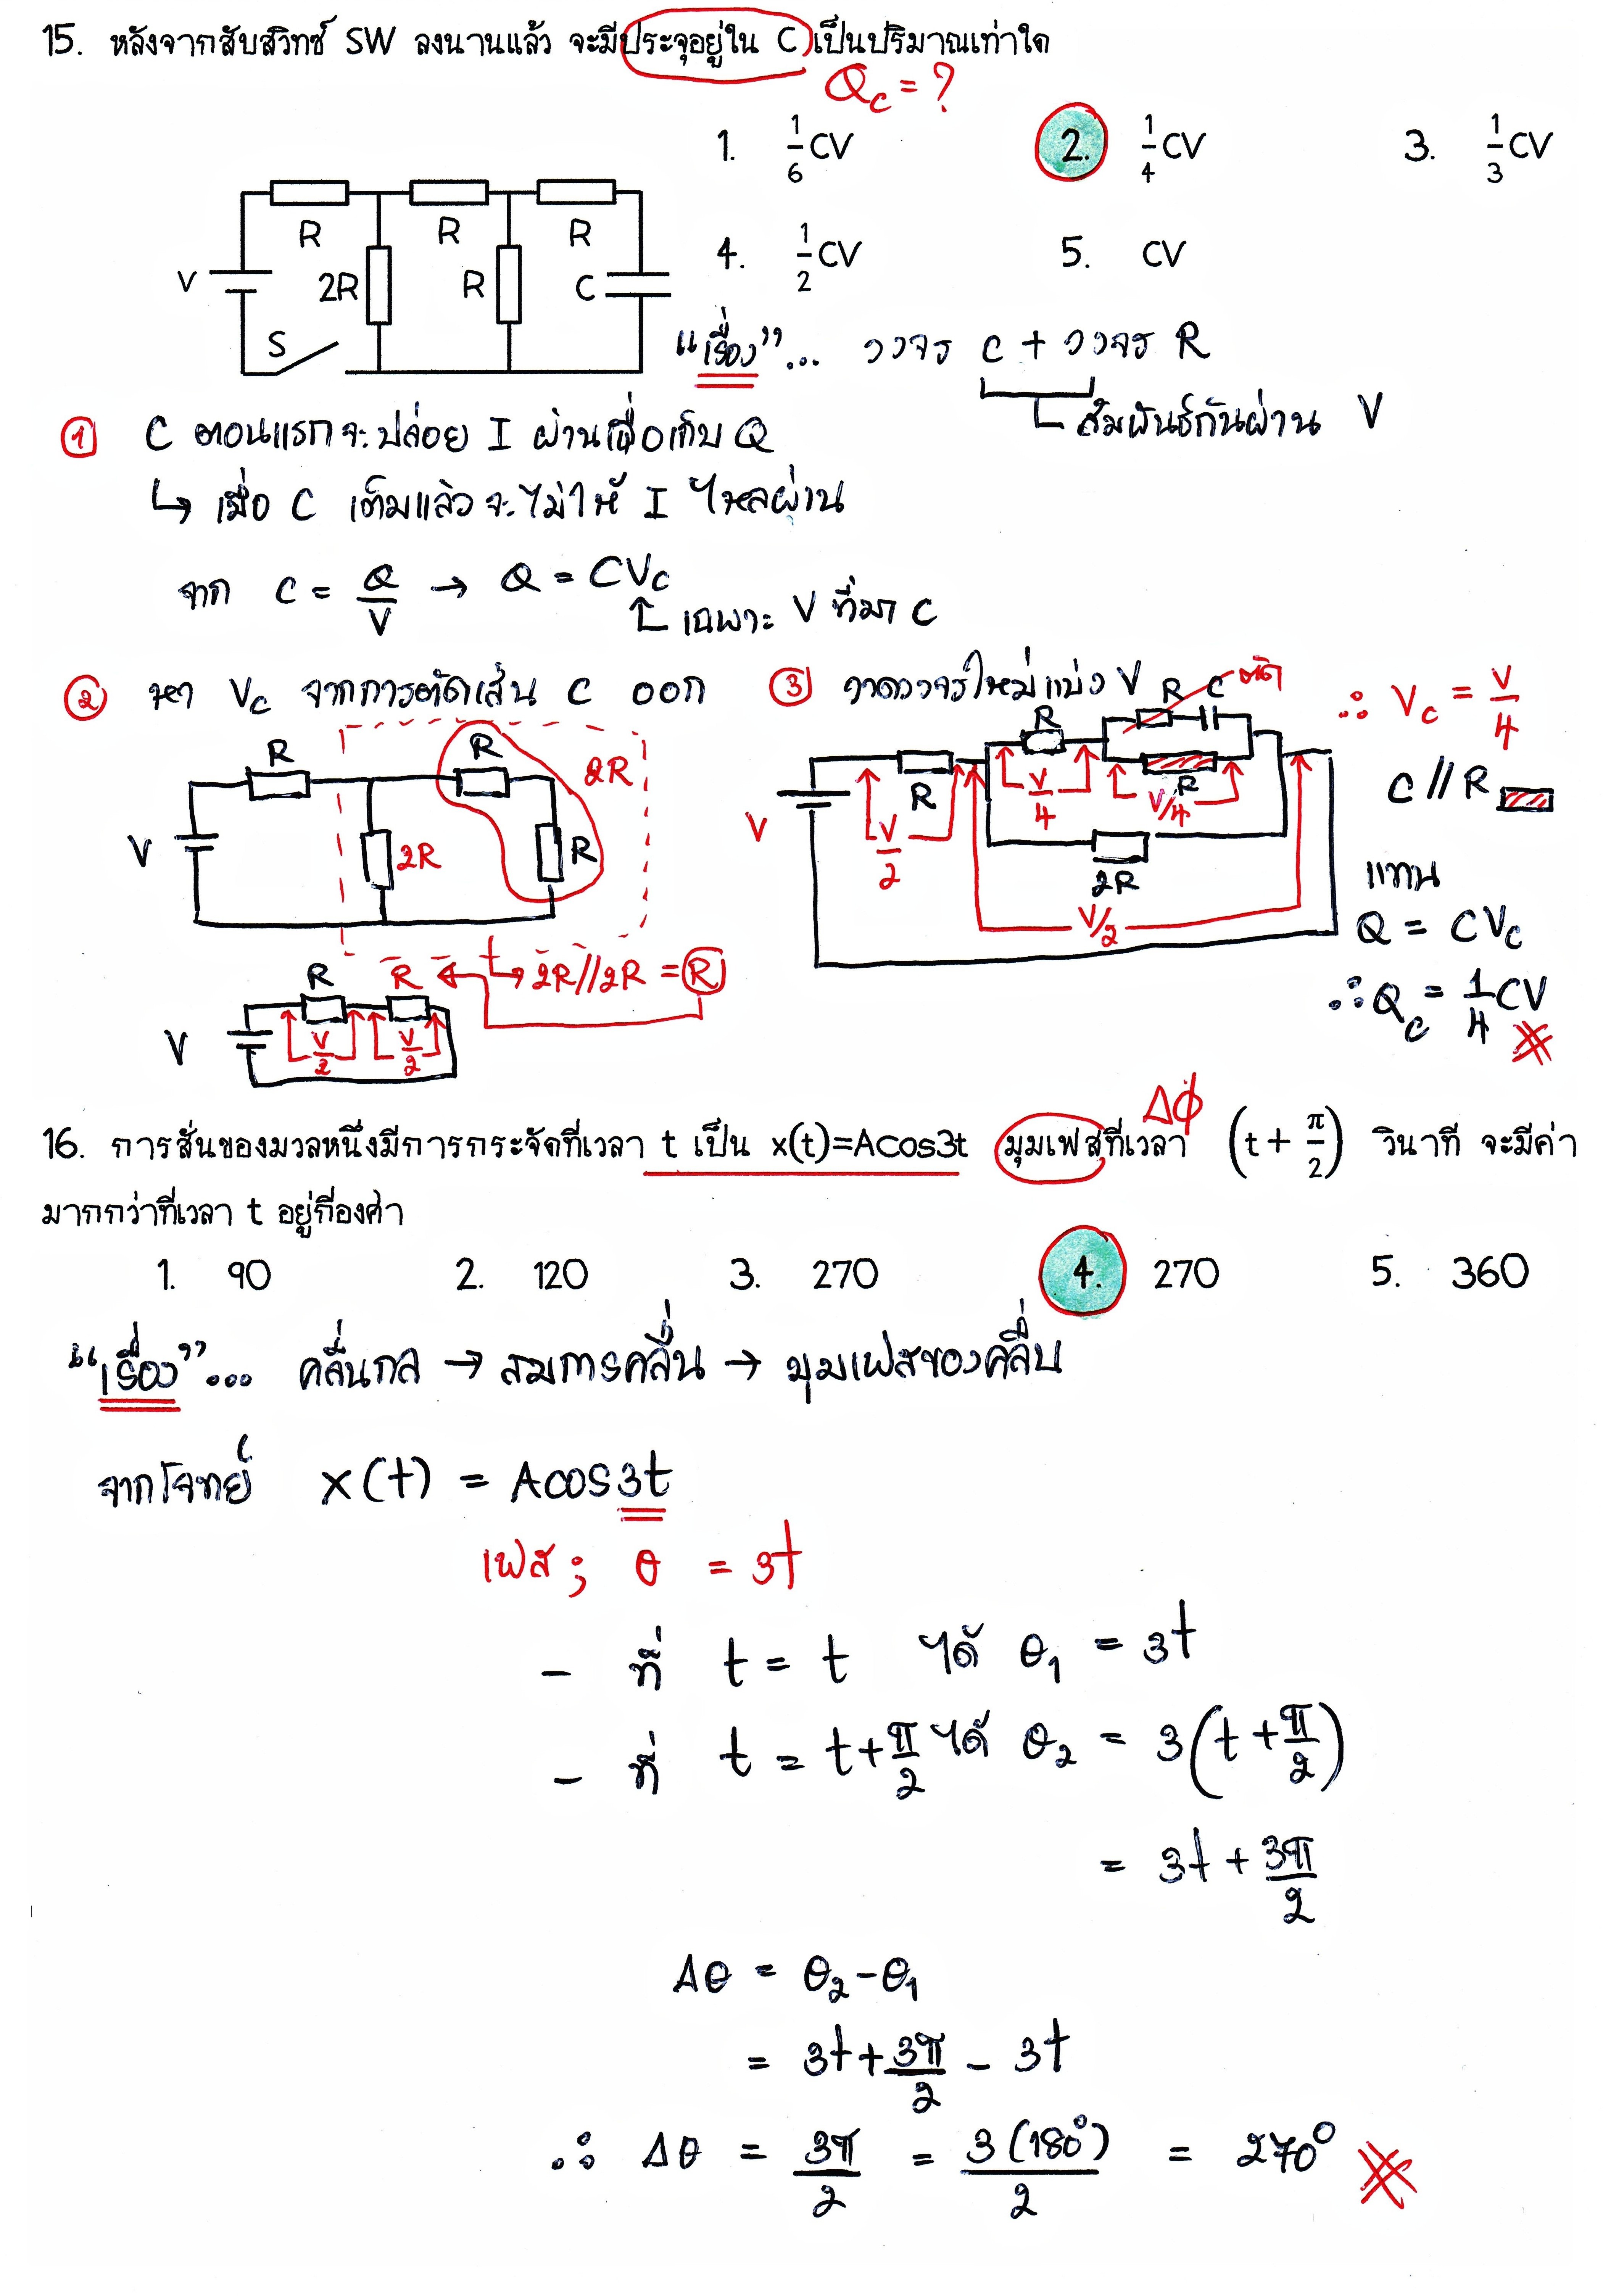 15. หลังจากสับสวิทซ์ SW ลงนานแล้ว จะมีประจุอยู่ใน C เป็นปริมาณเท่าใด
Q_C = ?
1. 1/6 CV 2. 1/4 CV 3. 1/3 CV
4. 1/2 CV 5. CV
R R R
V 2R R C
S
"เรื่อง"... วงจร C + วงจร R
สัมพันธ์กันผ่าน V
① C ตอนแรกจะปล่อย I ผ่านเพื่อเก็บ Q
↳ เมื่อ C เต็มแล้วจะไม่ให้ I ไหลผ่าน
จาก C = Q/V → Q = CV_C
เฉพาะ V ที่มา C
② หา V_C จากการตัดเส้น C ออก
R R 2R
V 2R R
↳ 2R//2R = R
R R
V V/2 V/2
③ วาดวงจรใหม่แบ่ง V
R R C ตัด
V R V/4 R V/4
V/2 2R
V/2
∴ V_C = V/4
C // R
แทน
Q = CV_C
∴ Q_C = 1/4 CV
Δϕ
16. การสั่นของมวลหนึ่งมีการกระจัดที่เวลา t เป็น x(t)=Acos3t มุมเฟสที่เวลา (t + π/2) วินาที จะมีค่า
มากกว่าที่เวลา t อยู่กี่องศา
1. 90 2. 120 3. 270 4. 270 5. 360
"เรื่อง"... คลื่นกล → สมการคลื่น → มุมเฟสของคลื่น
จากโจทย์ x(t) = Acos3t
เฟส; θ = 3t
- ที่ t = t ได้ θ₁ = 3t
- ที่ t = t + π/2 ได้ θ₂ = 3(t + π/2)
= 3t + 3π/2
Δθ = θ₂ - θ₁
= 3t + 3π/2 - 3t
∴ Δθ = 3π/2 = 3(180°)/2 = 270°